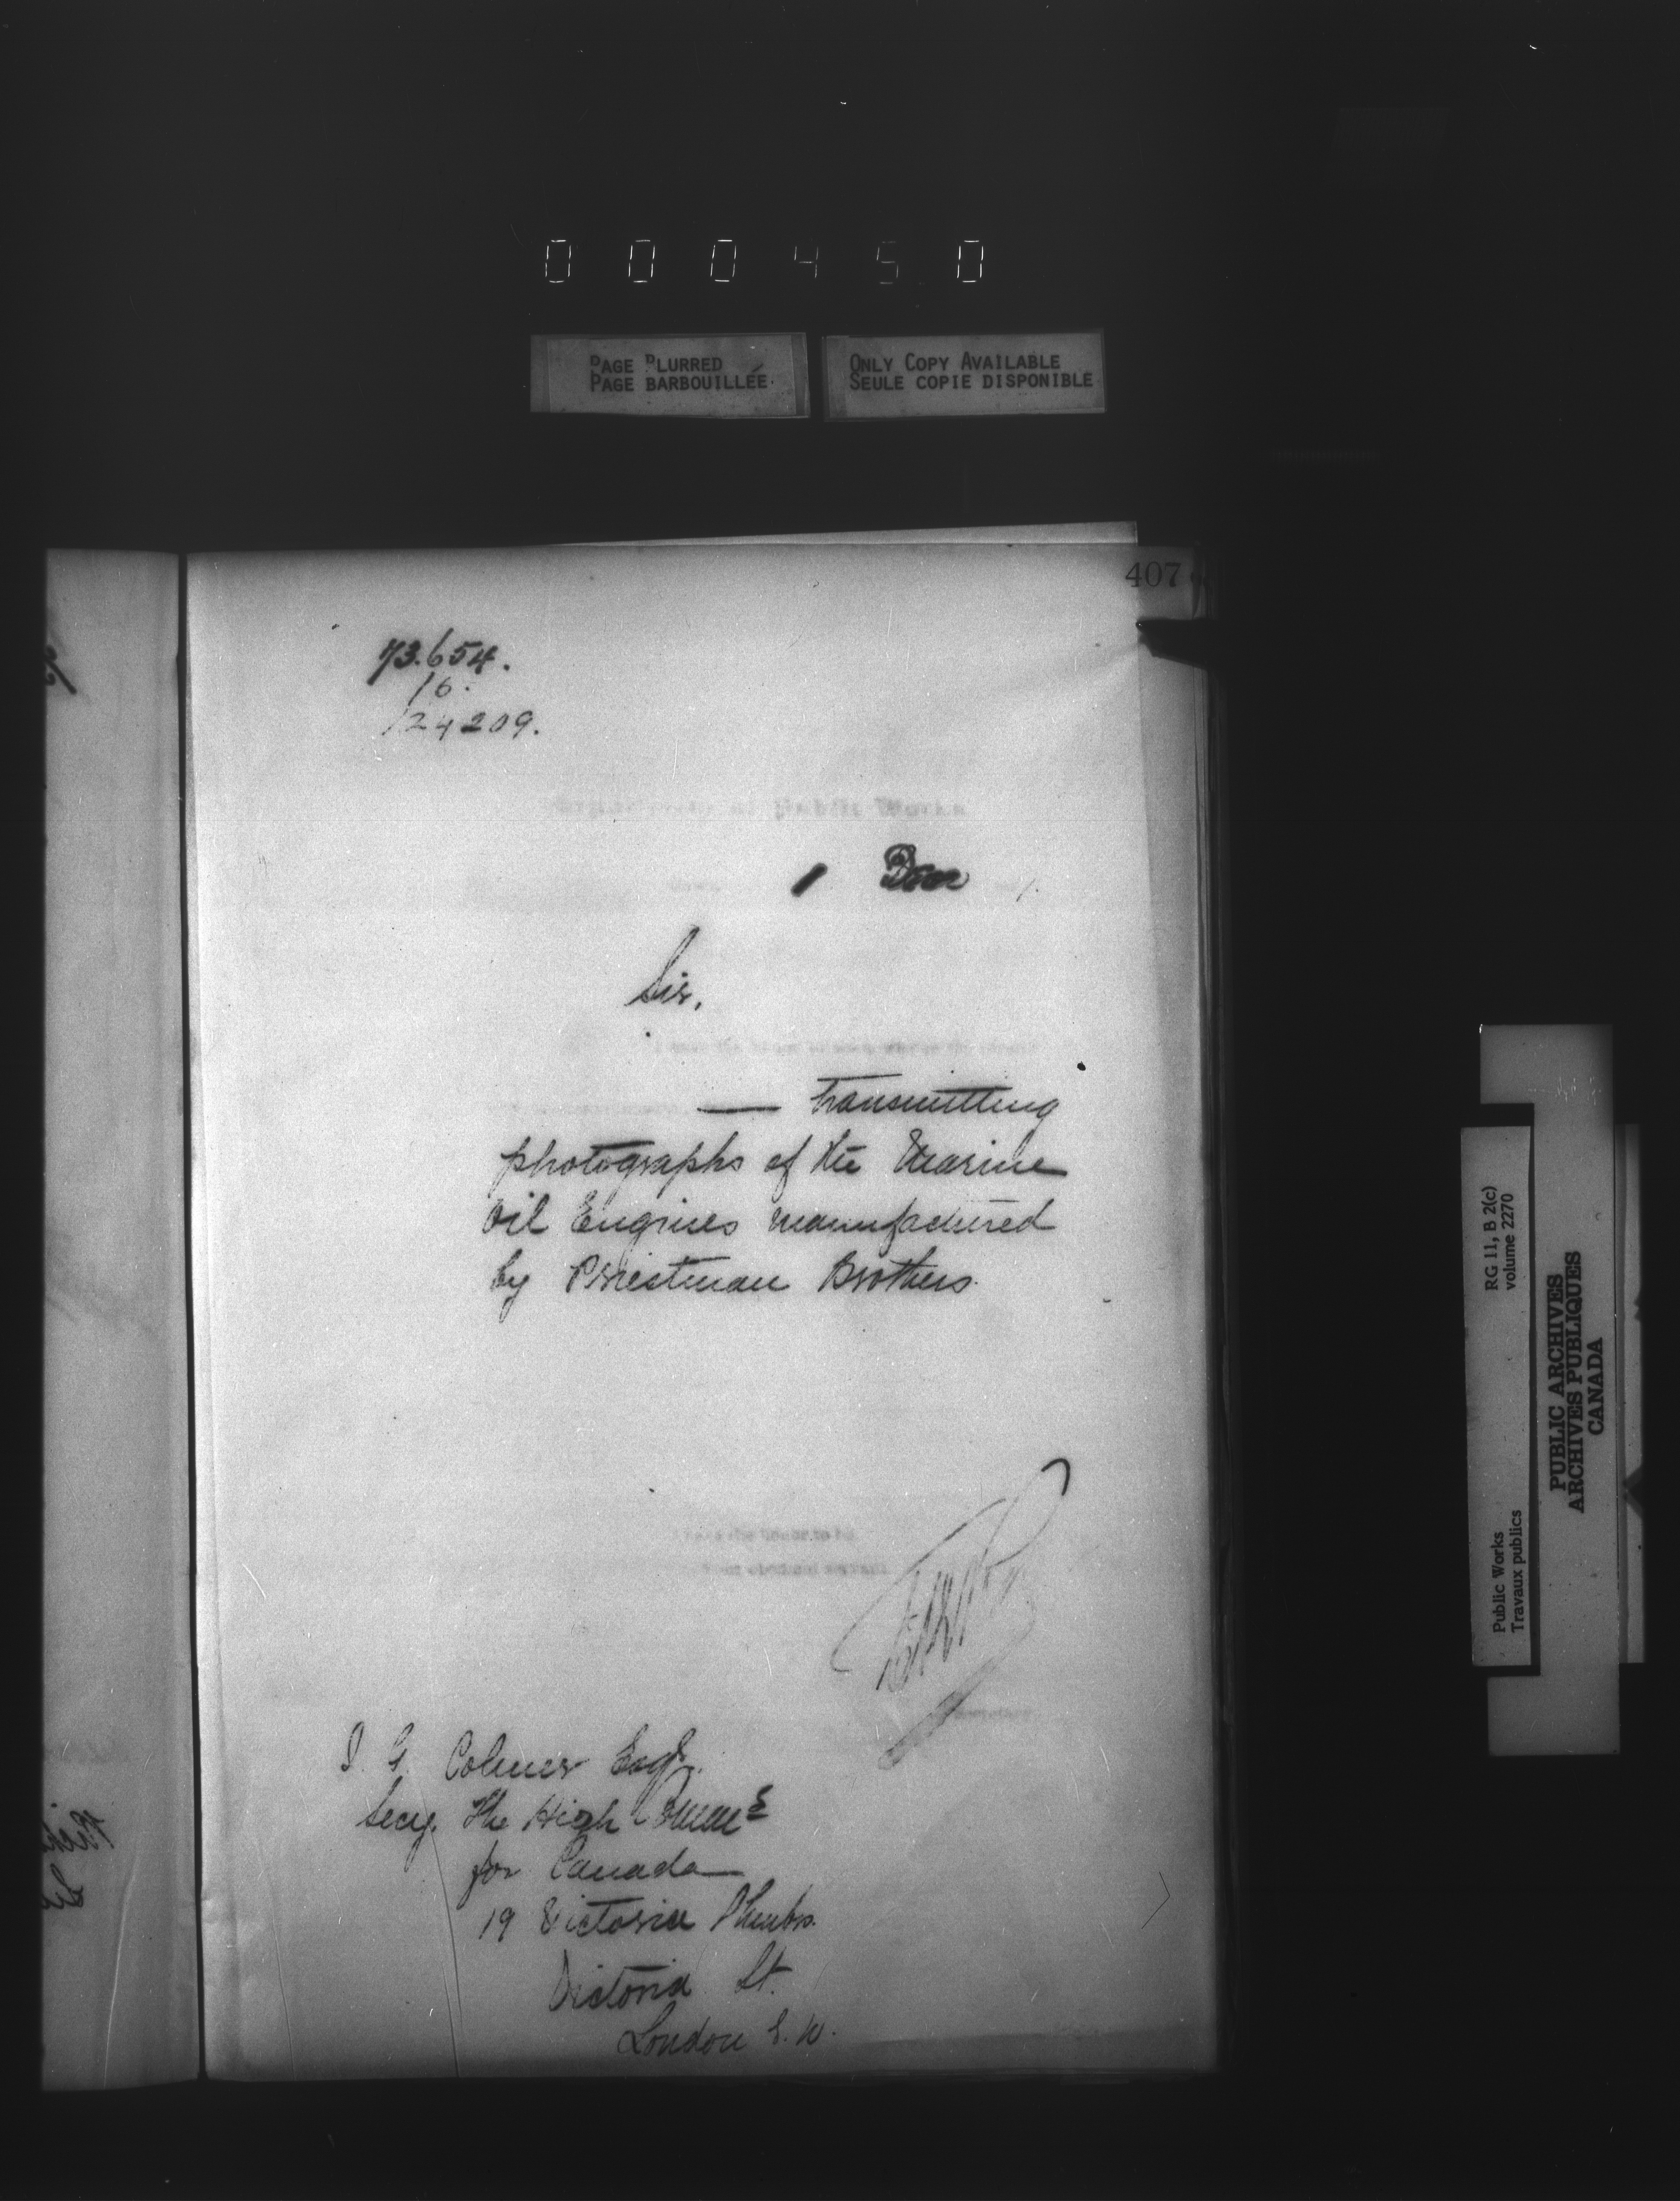 0 0 0 4 5 0
PAGE BLURRED
PAGE BARBOUILLÉE
ONLY COPY AVAILABLE
SEULE COPIE DISPONIBLE
407
73.654.
16.
124209.
Public Works
1 Decr
Sir,
— transmitting
photographs of the Marine
Oil Engines manufactured
by Priestman Brothers.
I have the honor to be
Your obedient servant
J. G. Colmer Esqr.
Secy. The High Commr
for Canada
19 Victoria Chmbrs.
Victoria St.
London S.W.
Public Works
Travaux publics
RG 11, B 2(c)
volume 2270
PUBLIC ARCHIVES
ARCHIVES PUBLIQUES
CANADA